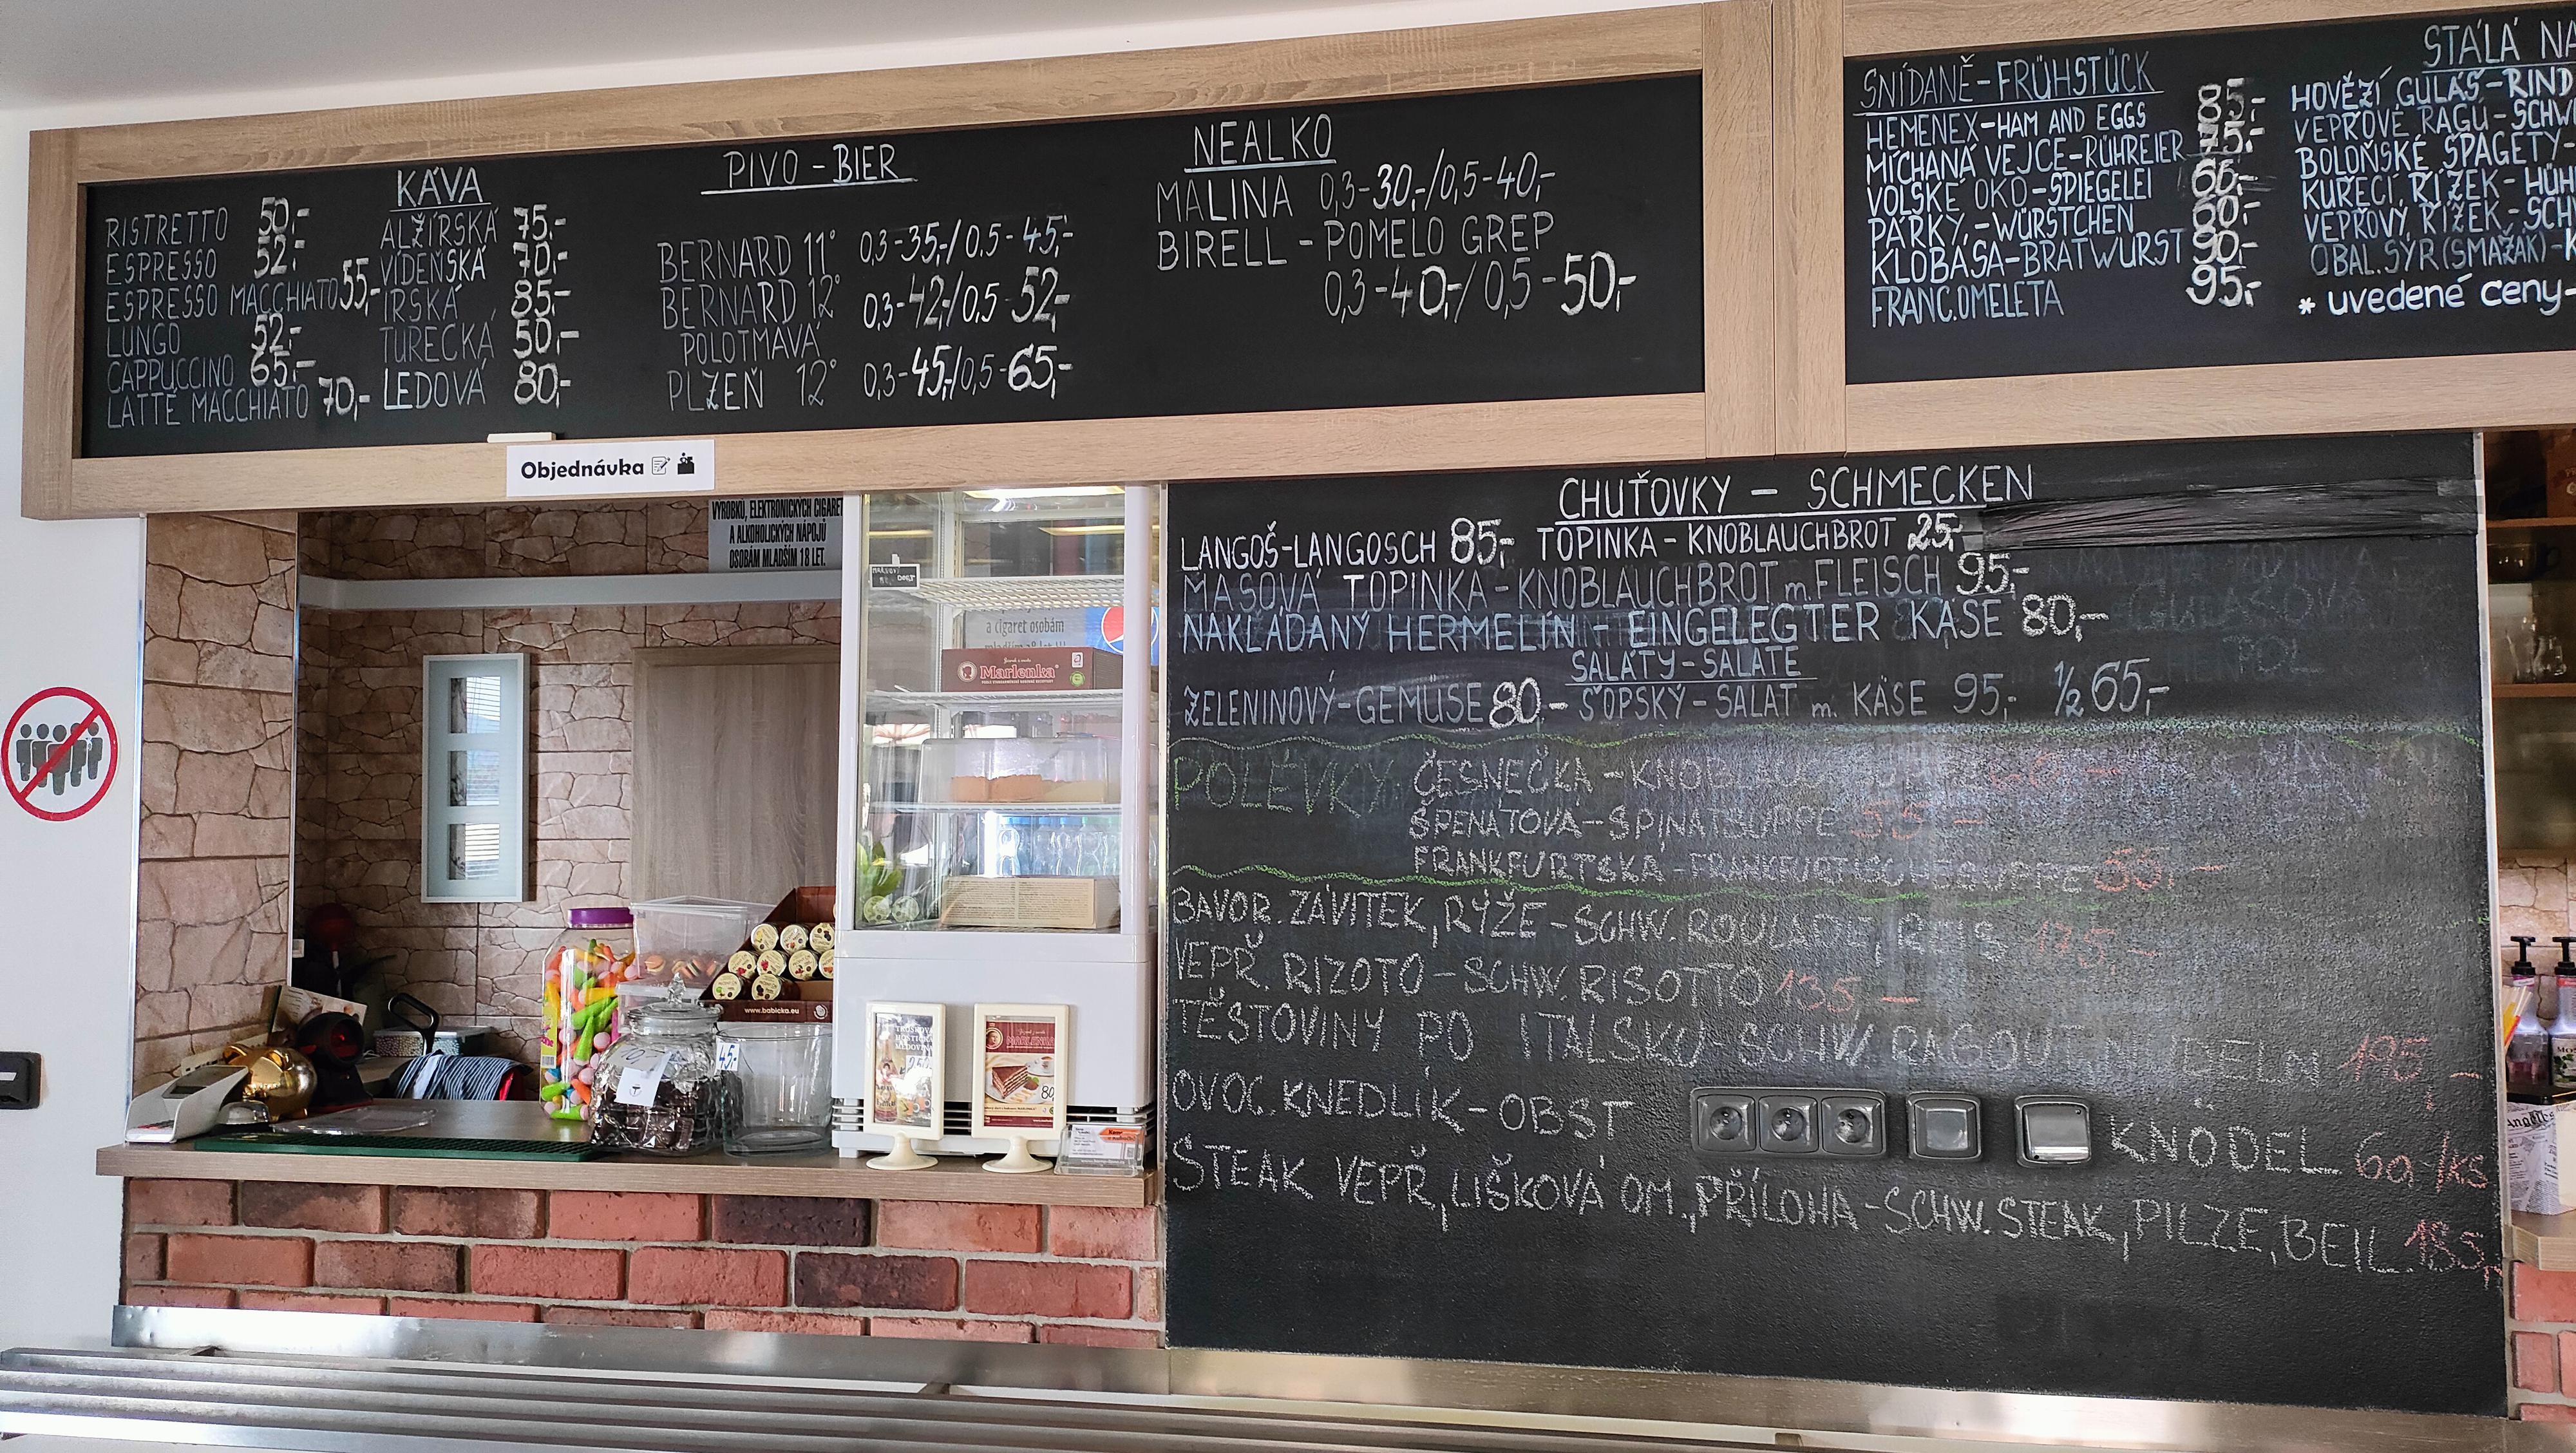 KÁVA
RISTRETTO 50,-
ESPRESSO 52,-
ESPRESSO MACCHIATO 55,-
LUNGO 52,-
CAPPUCCINO 65,-
LATTÉ MACCHIATO 70,-
ALŽÍRSKÁ 75,-
VÍDEŇSKÁ 70,-
IRSKÁ 85,-
TURECKÁ 50,-
LEDOVÁ 80,-
PIVO - BIER
BERNARD 11° 0,3-35,-/0,5-45,-
BERNARD 12° 0,3-42,-/0,5-52,-
POLOTMAVÁ
PLZEŇ 12° 0,3-45,-/0,5-65,-
NEALKO
MALINA 0,3-30,-/0,5-40,-
BIRELL - POMELO GREP
0,3-40,-/0,5-50,-
SNÍDANĚ-FRÜHSTÜCK
HEMENEX-HAM AND EGGS 85,-
MÍCHANÁ VEJCE-RÜHREIER 75,-
VOLSKÉ OKO-SPIEGELEI 60,-
PÁRKY,-WÜRSTCHEN 60,-
KLOBÁSA-BRATWURST 90,-
FRANC.OMELETA 95,-
STÁLÁ
HOVĚZÍ GULÁŠ-RIND
VEPŘOVÉ RAGÚ-SCHW
BOLOŇSKÉ ŠPAGETY-
KUŘECÍ ŘÍZEK-
VEPŘOVÝ ŘÍZEK-
OBAL.SÝR (SMAŽÁK)-
* uvedené ceny
Objednávka
VÝROBKŮ, ELEKTRONICKÝCH CIGARET
A ALKOHOLICKÝCH NÁPOJŮ
OSOBÁM MLADŠÍM 18 LET.
a cigaret osobám
Marlenka®
www.babicka.eu
45,-
80
CHUŤOVKY - SCHMECKEN
LANGOŠ-LANGOSCH 85,- TOPINKA-KNOBLAUCHBROT 25,-
MASOVÁ TOPINKA-KNOBLAUCHBROT m. FLEISCH 95,-
NAKLÁDANÝ HERMELÍN - EINGELEGTER KÄSE 80,-
SALÁTY-SALATE
ZELENINOVÝ-GEMÜSE 80,- ŠOPSKÝ-SALAT m. KÄSE 95,- 1/2 65,-
POLÉVKY ČESNEČKA -
ŠPENÁTOVÁ-SPINATSUPPE 55,-
FRANKFURTSKÁ-FRANKFURTISCHESUPPE 55,-
BAVOR. ZÁVITEK, RÝŽE-SCHW. ROULADE, REIS 175,-
VEPŘ. RIZOTO-SCHW. RISOTTO 135,-
TĚSTOVINY PO ITALSKU SCHW. RAGOUT NUDELN 195,-
OVOC. KNEDLÍK-OBST KNÖDEL 60,-/ks
STEAK VEPŘ, LIŠKOVÁ OM., PŘÍLOHA-SCHW. STEAK, PILZE, BEIL. 185,-